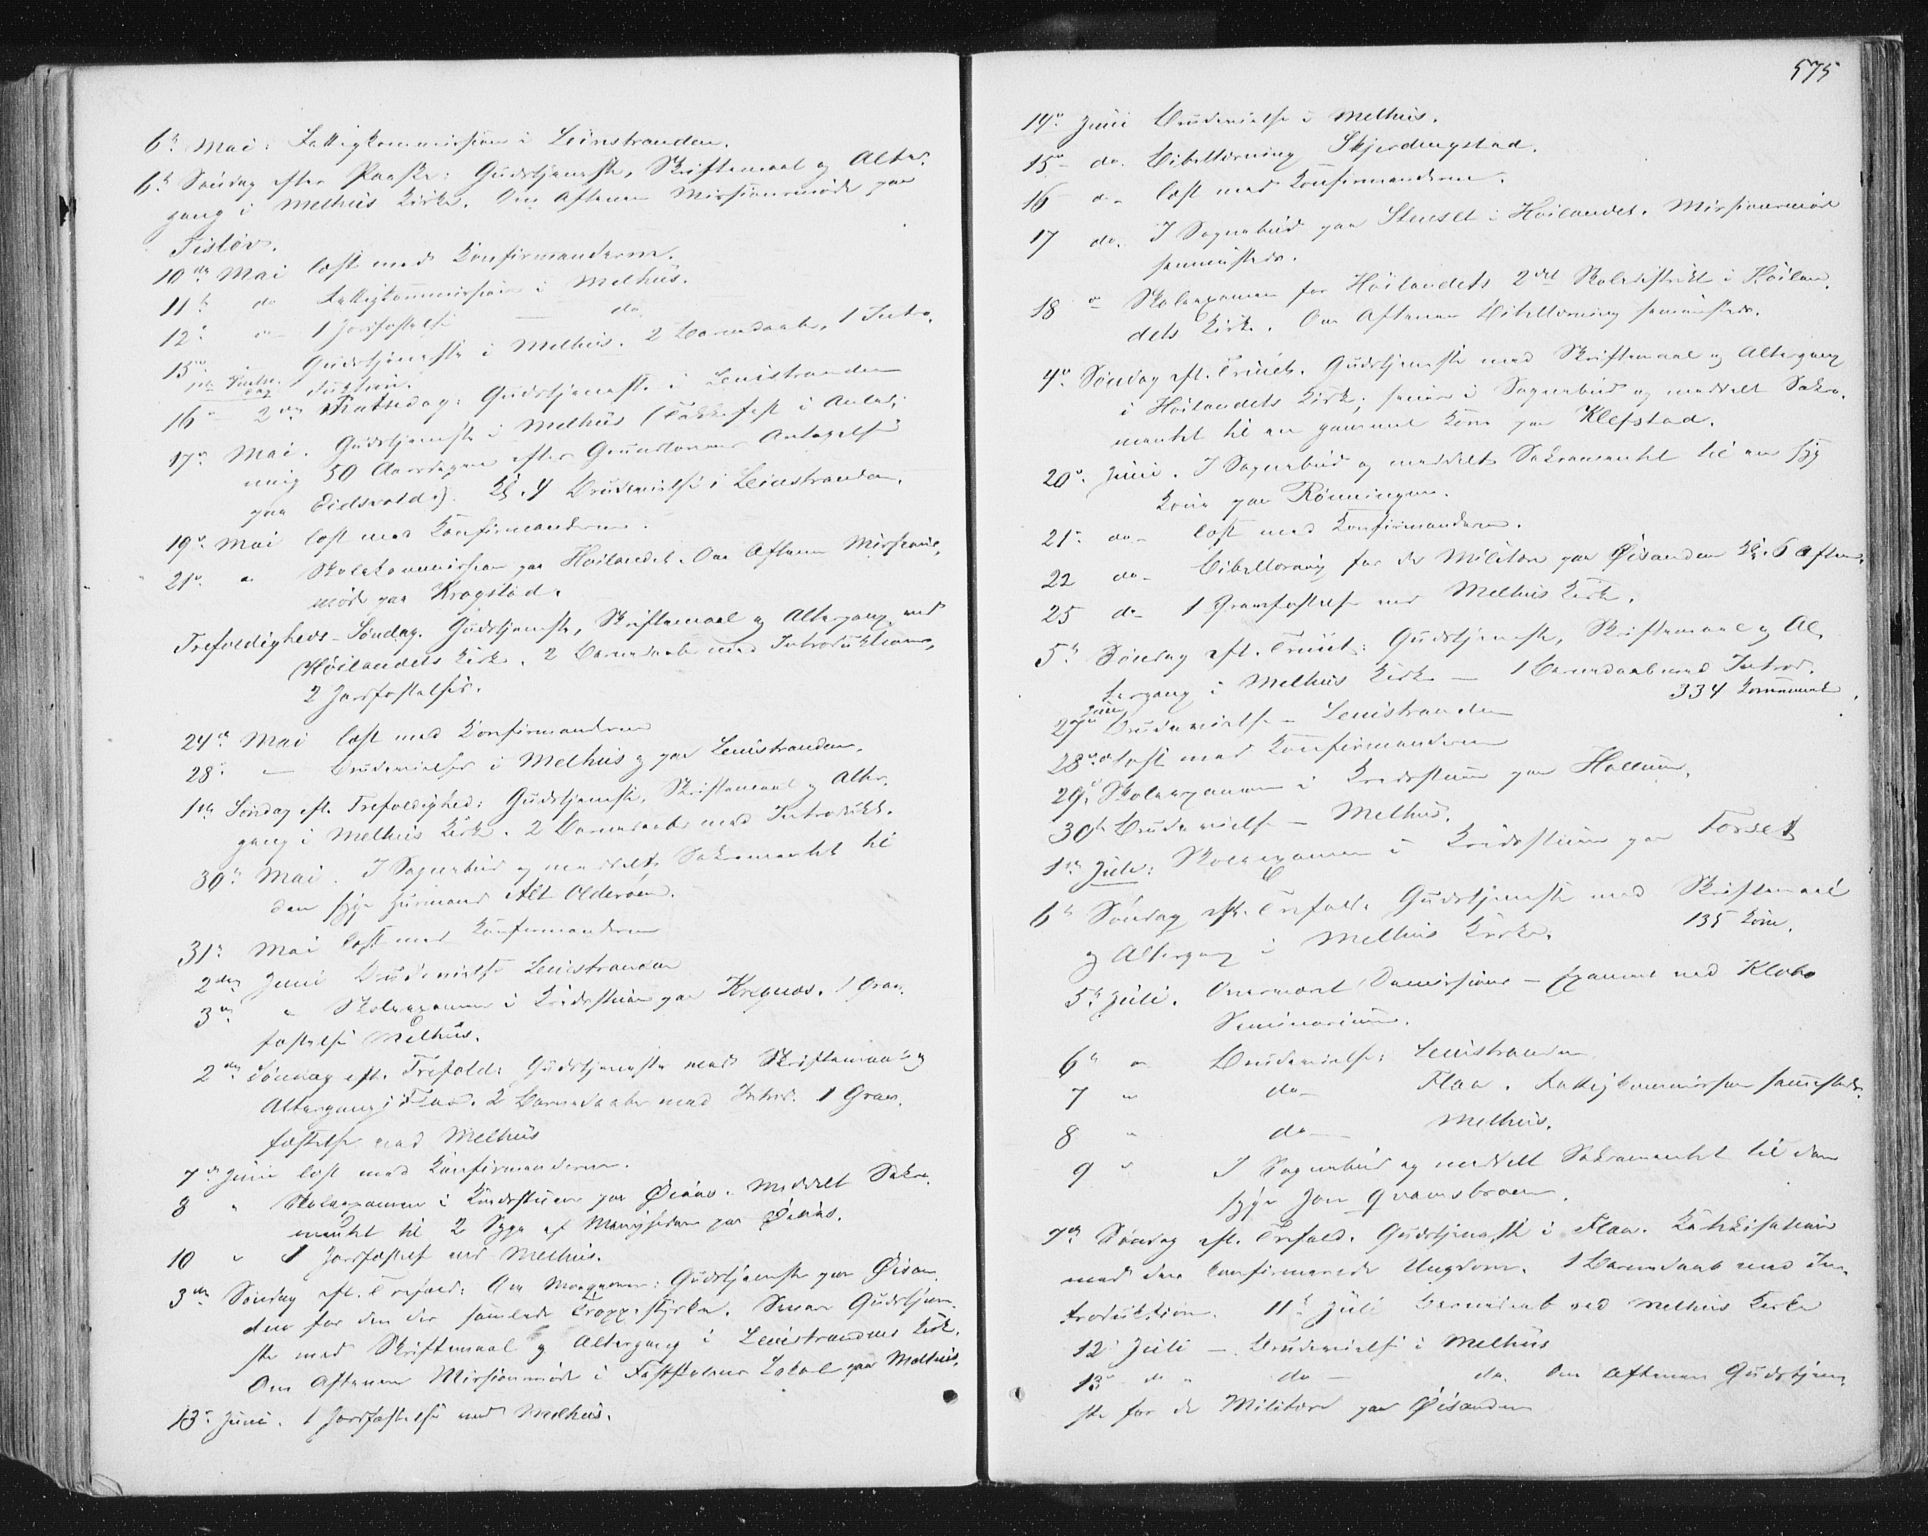 6te Mai: Fattigkommission i Leinstranden.
6te Søndag efter Paaske: Gudstjeneste, Skriftemaal og Alter-
gang i Melhus Kirke. Om Aftenen Missionsmøde paa
10de Mai læst med Konfirmanderne.
11te do Fattigkommission i Melhus.
12te do 1 Jordfæstelse — do
15de Gudstjeneste i Melhus. 2 Barnedaab, 1 Intro-
1ste Pintsedag duktion.
16de 2den Pintsedag: Gudstjeneste i Leinstranden
17de Mai. Gudstjeneste i Melhus (Takkefest i Anled-
ning 50 Aarsdagen efter Grundlovens Antagelse
paa Eidsvold.) Kl. 4 Brudevielse i Leinstranden.
19de Mai læst med Konfirmanderne.
21de " Skolekommission paa Høilandet. Om Aftenen Missions-
møde paa Krogstad.
Trefoldigheds-Søndag. Gudstjeneste, Skriftemaal og Altergang ved
Høilandets Kirke. 2 Barnedaab med Introduktion,
2 Jordfæstelser.
24de Mai læst med Konfirmanderne
28de — Brudevielser i Melhus og paa Leinstranden.
1ste Søndag eft. Trefoldighed: Gudstjeneste, Skriftemaal og Alter-
gang i Melhus Kirke. 2 Barnedaab med Introdukt.
30te Mai. I Sognebud og meddelt Sakramentet til
den syge Husmand Alt Olderøien.
31te Mai læst med Konfirmanderne
2den Juni Brudevielse Leinstranden
3die " Skoleexamen i Kredsstuen paa Kregnæs. 1 Grav-
fæstelse Melhus.
2den Søndag eft. Trefold: Gudstjeneste med Skriftemaal og
Altergang i Flaa. 2 Barnedaab med Introd. 1 Grav-
fæstelse ved Melhus
7de Juni læst med Konfirmanderne.
8 " Skoleexamen i Kredsstuen paa Øiaas. Meddelt Sakra-
mentet til 2 Syge af Menigheden paa Øiaas.
10 " 1 Jordfæstelse ved Melhus.
3die Søndag eft. Trefold: Om Morgenen: Gudstjeneste paa Øisan-
den for den der samlede Troppestyrke. Senere Gudstjene-
ste med Skriftemaal og Altergang i Leinstrandens Kirke.
Om Aftenen Missionsmøde i Fastskolens Lokale paa Melhus.
13de Juni. 1 Jordfæstelse ved Melhus.
575
14de Juni Brudevielse i Melhus.
15de do. Bibellæsning Skjerdingstad.
16 do læst med Konfirmanderne.
17 do. I Sognebud paa Stenset i Høilandet. Missionsmøde
sammesteds.
18 do Skoleexamen for Høilandets 2det Skoledistrikt i Høilan-
dets Kirke. Om Aftenen Bibellæsning sammesteds.
4de Søndag eft. Trinit. Gudstjeneste med Skriftemaal og Altergang
i Høilandets Kirke; senere i Sognebud og meddelt Sakra-
mentet til en gammel Kone paa Klefstad.
20de Juni. I Sognebud og meddelt Sakramentet til en syg
Kone paa Rønningen.
21de do læst med Konfirmanderne.
22 do Bibellæsning for de Militære paa Øisanden Kl. 6 Aften.
25 do 1 Gravfæstelse ved Melhus Kirke.
5te Søndag eft. Trinit: Gudstjeneste, Skriftemaal og Al-
tergang i Melhus Kirke — 1 Barnedaab med Introd.
334 Kommunik.
27de Juni Brudevielse — Leinstranden
28de do læst med Konfirmanderne
29de Skoleexamen i Kredsstuen paa Hollum.
30te Brudevielse — Melhus.
1ste Juli: Skoleexamen i Kredsstuen paa Forset
6te Søndag eft. Trefold. Gudstjeneste med Skriftemaal
og Altergang i Melhus Kirke. 135 Kom.
5te Juli. Overværet Dimissions-Examen ved Klæbo
Seminarium.
6te " Brudevielse: Leinstranden
7 " do — Flaa. Fattigkommission sammesteds.
8 " do — Melhus.
9 " I Sognebud og meddelt Sakramentet til den
syge Jon Qvamsbroen.
7de Søndag eft. Trefold. Gudstjeneste i Flaa. Katekisation
med den konfirmerede Ungdom. 1 Barnedaab med In-
troduktion. 11te Juli Barnedaab ved Melhus Kirke
12 Juli — Brudevielse i Melhus
13de do " do — do. Om Aftenen Gudstjene-
ste for de Militære paa Øisanden